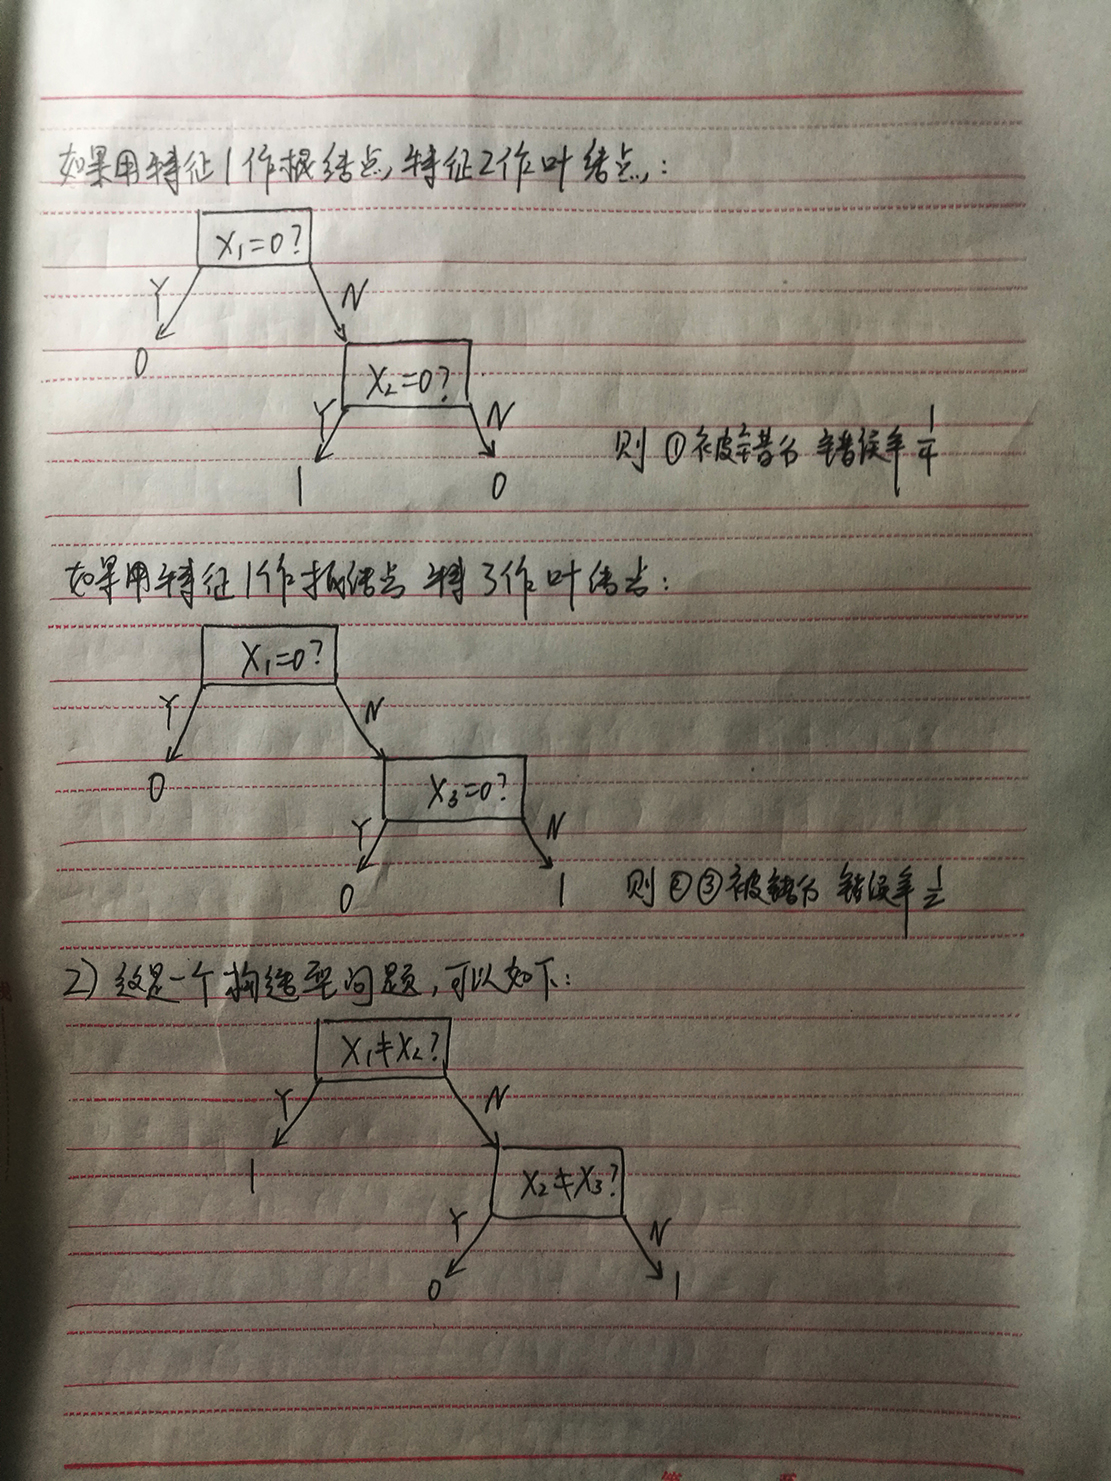 如果用特征1作根结点,特征2作叶结点,:
X₁=0?
Y N
0
X₂=0?
Y N
则 ①被错分 错误率 1/4
1 0
如果用特征1作根结点 特3作叶结点:
X₁=0?
Y N
0
X₃=0?
Y N
0 1
则 ②③被错分 错误率 1/2
2) 这是一个构造型问题,可以如下:
X₁≠X₂?
Y N
1
X₂≠X₃?
Y N
0 1